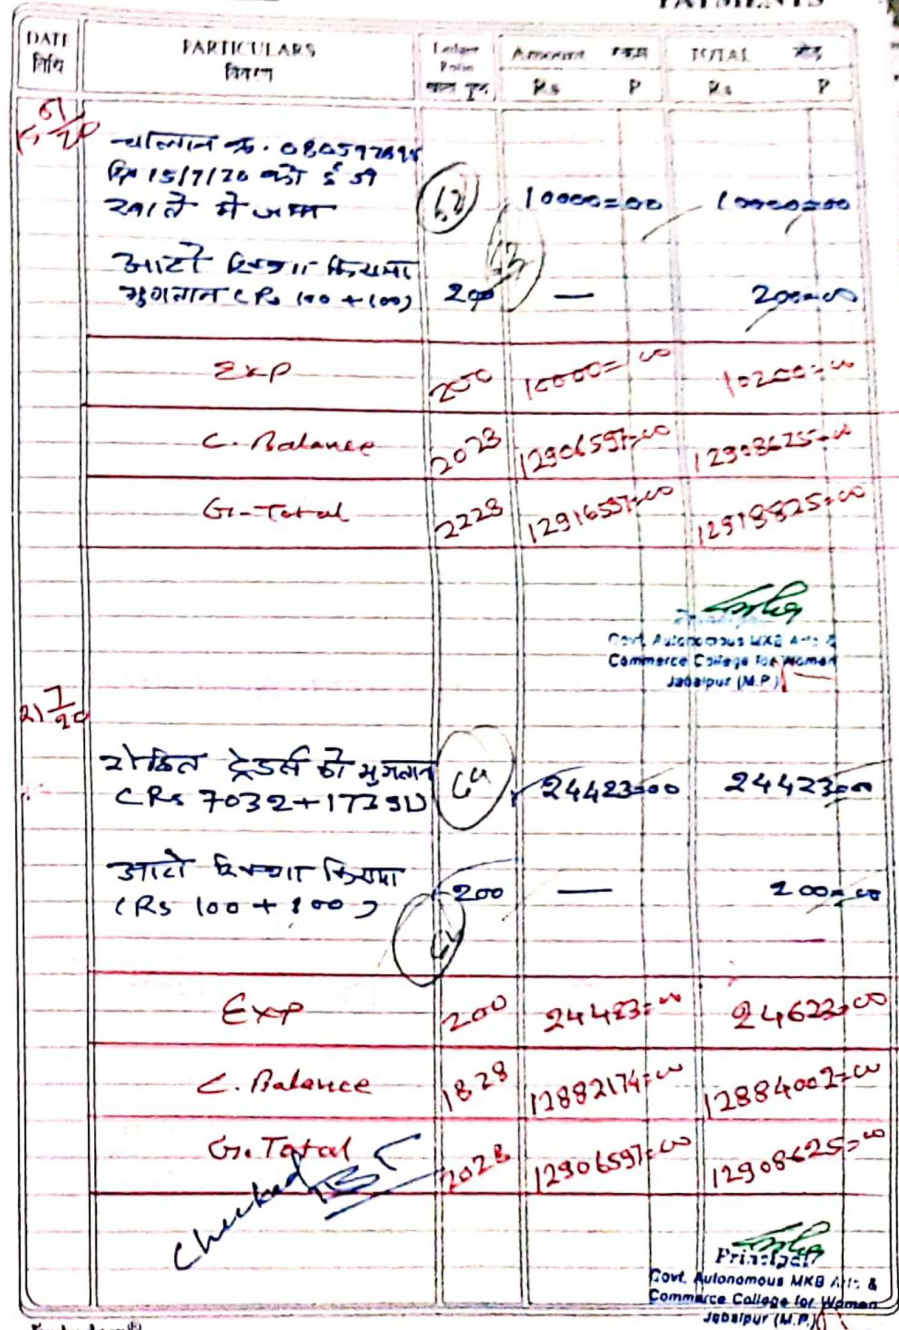 PAYMENTS
DATE PARTICULARS Ledger Folio Amount रकम TOTAL जोड़
तिथि विवरण खाता पृष्ठ Rs P Rs P
चालान क्र.
15/7/20 को
खाते में जमा 10000=00 10000=00
आटो रिक्शा किराया
भुगतान (Rs 100 + 100) 200 — 200=00
Exp 200 10000=00 10200=00
C. Balance 2028 12906597=00 12908625=00
G. Total 2228 12916597=00 12918825=00
Govt. Autonomous MKB Arts &
Commerce College for Women
Jabalpur (M.P.)
21/7/20
रोहित ट्रेडर्स को भुगतान 64 24423=00 24423=00
(Rs 7032 + 17391)
आटो रिक्शा किराया
(Rs 100 + 100) 200 — 200=00
Exp 200 24423=00 24623=00
C. Balance 1828 12882174=00 12884002=00
G. Total 2028 12906597=00 12908625=00
Checked
Principal
Govt. Autonomous MKB Arts &
Commerce College for Women
Jabalpur (M.P.)